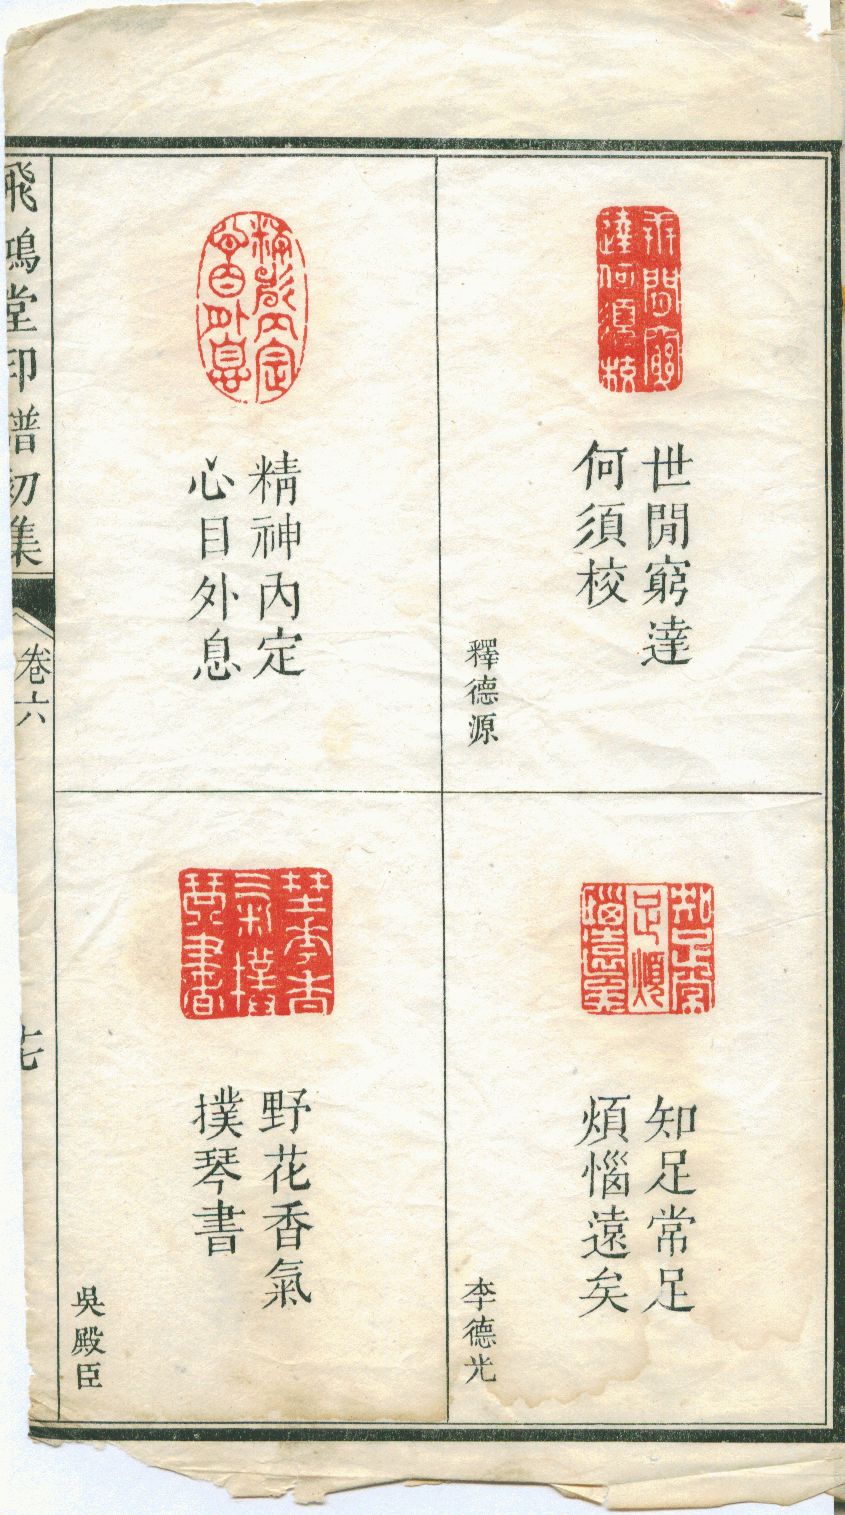 世閒窮達
何須校
釋德源
精神內定
心目外息
知足常足
煩惱遠矣
李德光
野花香氣
撲琴書
吳殿臣
飛鴻堂印譜初集
卷六
七